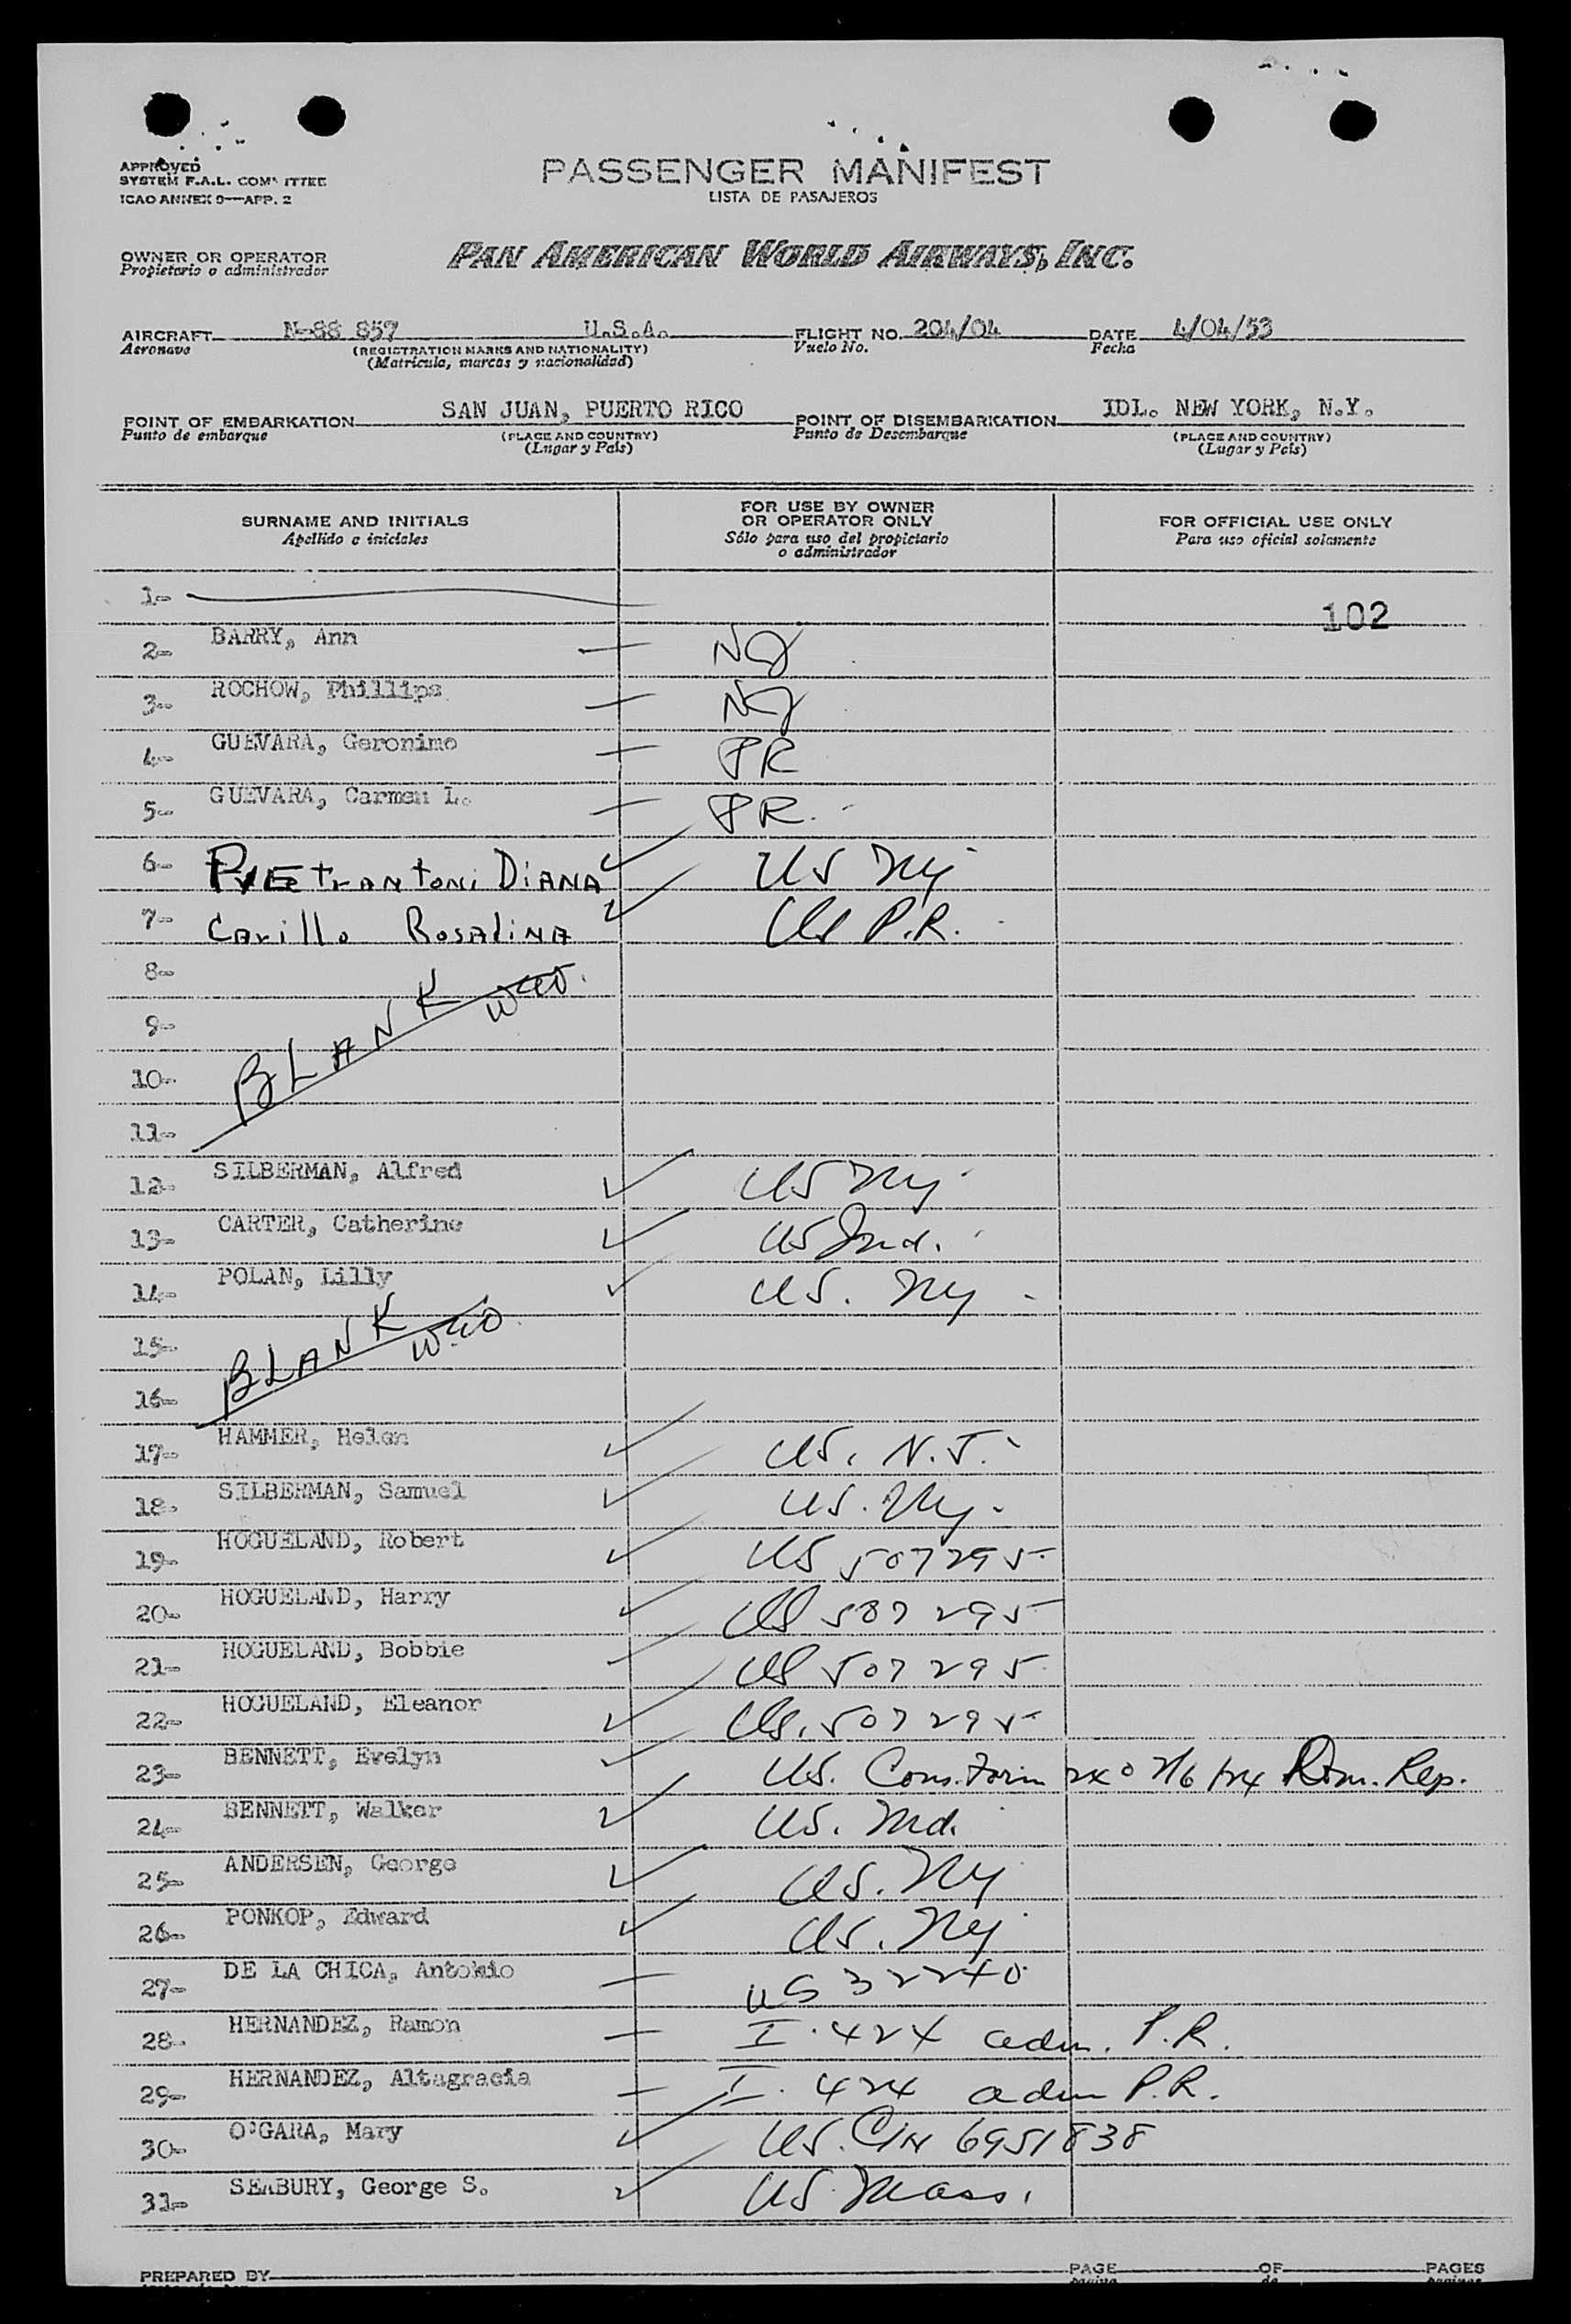 APPROVED
SYSTEM F.A.L. COMMITTEE
ICAO ANNEX 9—APP. 2
PASSENGER MANIFEST
LISTA DE PASAJEROS
OWNER OR OPERATOR
Propietario o administrador
PAN AMERICAN WORLD AIRWAYS, INC.
AIRCRAFT N-88 857 U.S.A. FLIGHT NO. 204/04 DATE 4/04/53
Aeronave (REGISTRATION MARKS AND NATIONALITY) Vuelo No. Fecha
(Matrícula, marcas y nacionalidad)
POINT OF EMBARKATION SAN JUAN, PUERTO RICO POINT OF DISEMBARKATION IDL. NEW YORK, N.Y.
Punto de embarque (PLACE AND COUNTRY) Punto de Desembarque (PLACE AND COUNTRY)
(Lugar y País) (Lugar y País)
SURNAME AND INITIALS FOR USE BY OWNER OR OPERATOR ONLY FOR OFFICIAL USE ONLY
Apellido e iniciales Sólo para uso del propietario o administrador Para uso oficial solamente
1-
102
2- BARRY, Ann — NY
3- ROCHOW, Phillips — NY
4- GUEVARA, Geronimo — PR
5- GUEVARA, Carmen L. — PR.
6- PIETRANTONI DIANA ✓ US NY
7- Carillo Rosalina ✓ US P.R.
8-
9- BLANK
10-
11-
12- SILBERMAN, Alfred ✓ US NY
13- CARTER, Catherine ✓ US Ind.
14- POLAN, Lilly ✓ US. NY -
15- BLANK
16-
17- HAMMER, Helen ✓ US. N.J.
18- SILBERMAN, Samuel ✓ US. NY.
19- HOGUELAND, Robert ✓ US 507295
20- HOGUELAND, Harry ✓ US 507295
21- HOGUELAND, Bobbie — US 507295
22- HOGUELAND, Eleanor ✓ US. 507295
23- BENNETT, Evelyn ✓ US. Cons. Form Dom. Rep.
24- BENNETT, Walker ✓ US. Md.
25- ANDERSEN, George ✓ US. NY
26- PONKOP, Edward ✓ US. NY
27- DE LA CHICA, Antonio — US 32240
28- HERNANDEZ, Ramon — I. 424 adm. P.R.
29- HERNANDEZ, Altagracia — I. 424 adm P.R.
30- O'GARA, Mary ✓ US. C/N 6951838
31- SEABURY, George S. ✓ US. Mass.
PREPARED BY PAGE OF PAGES